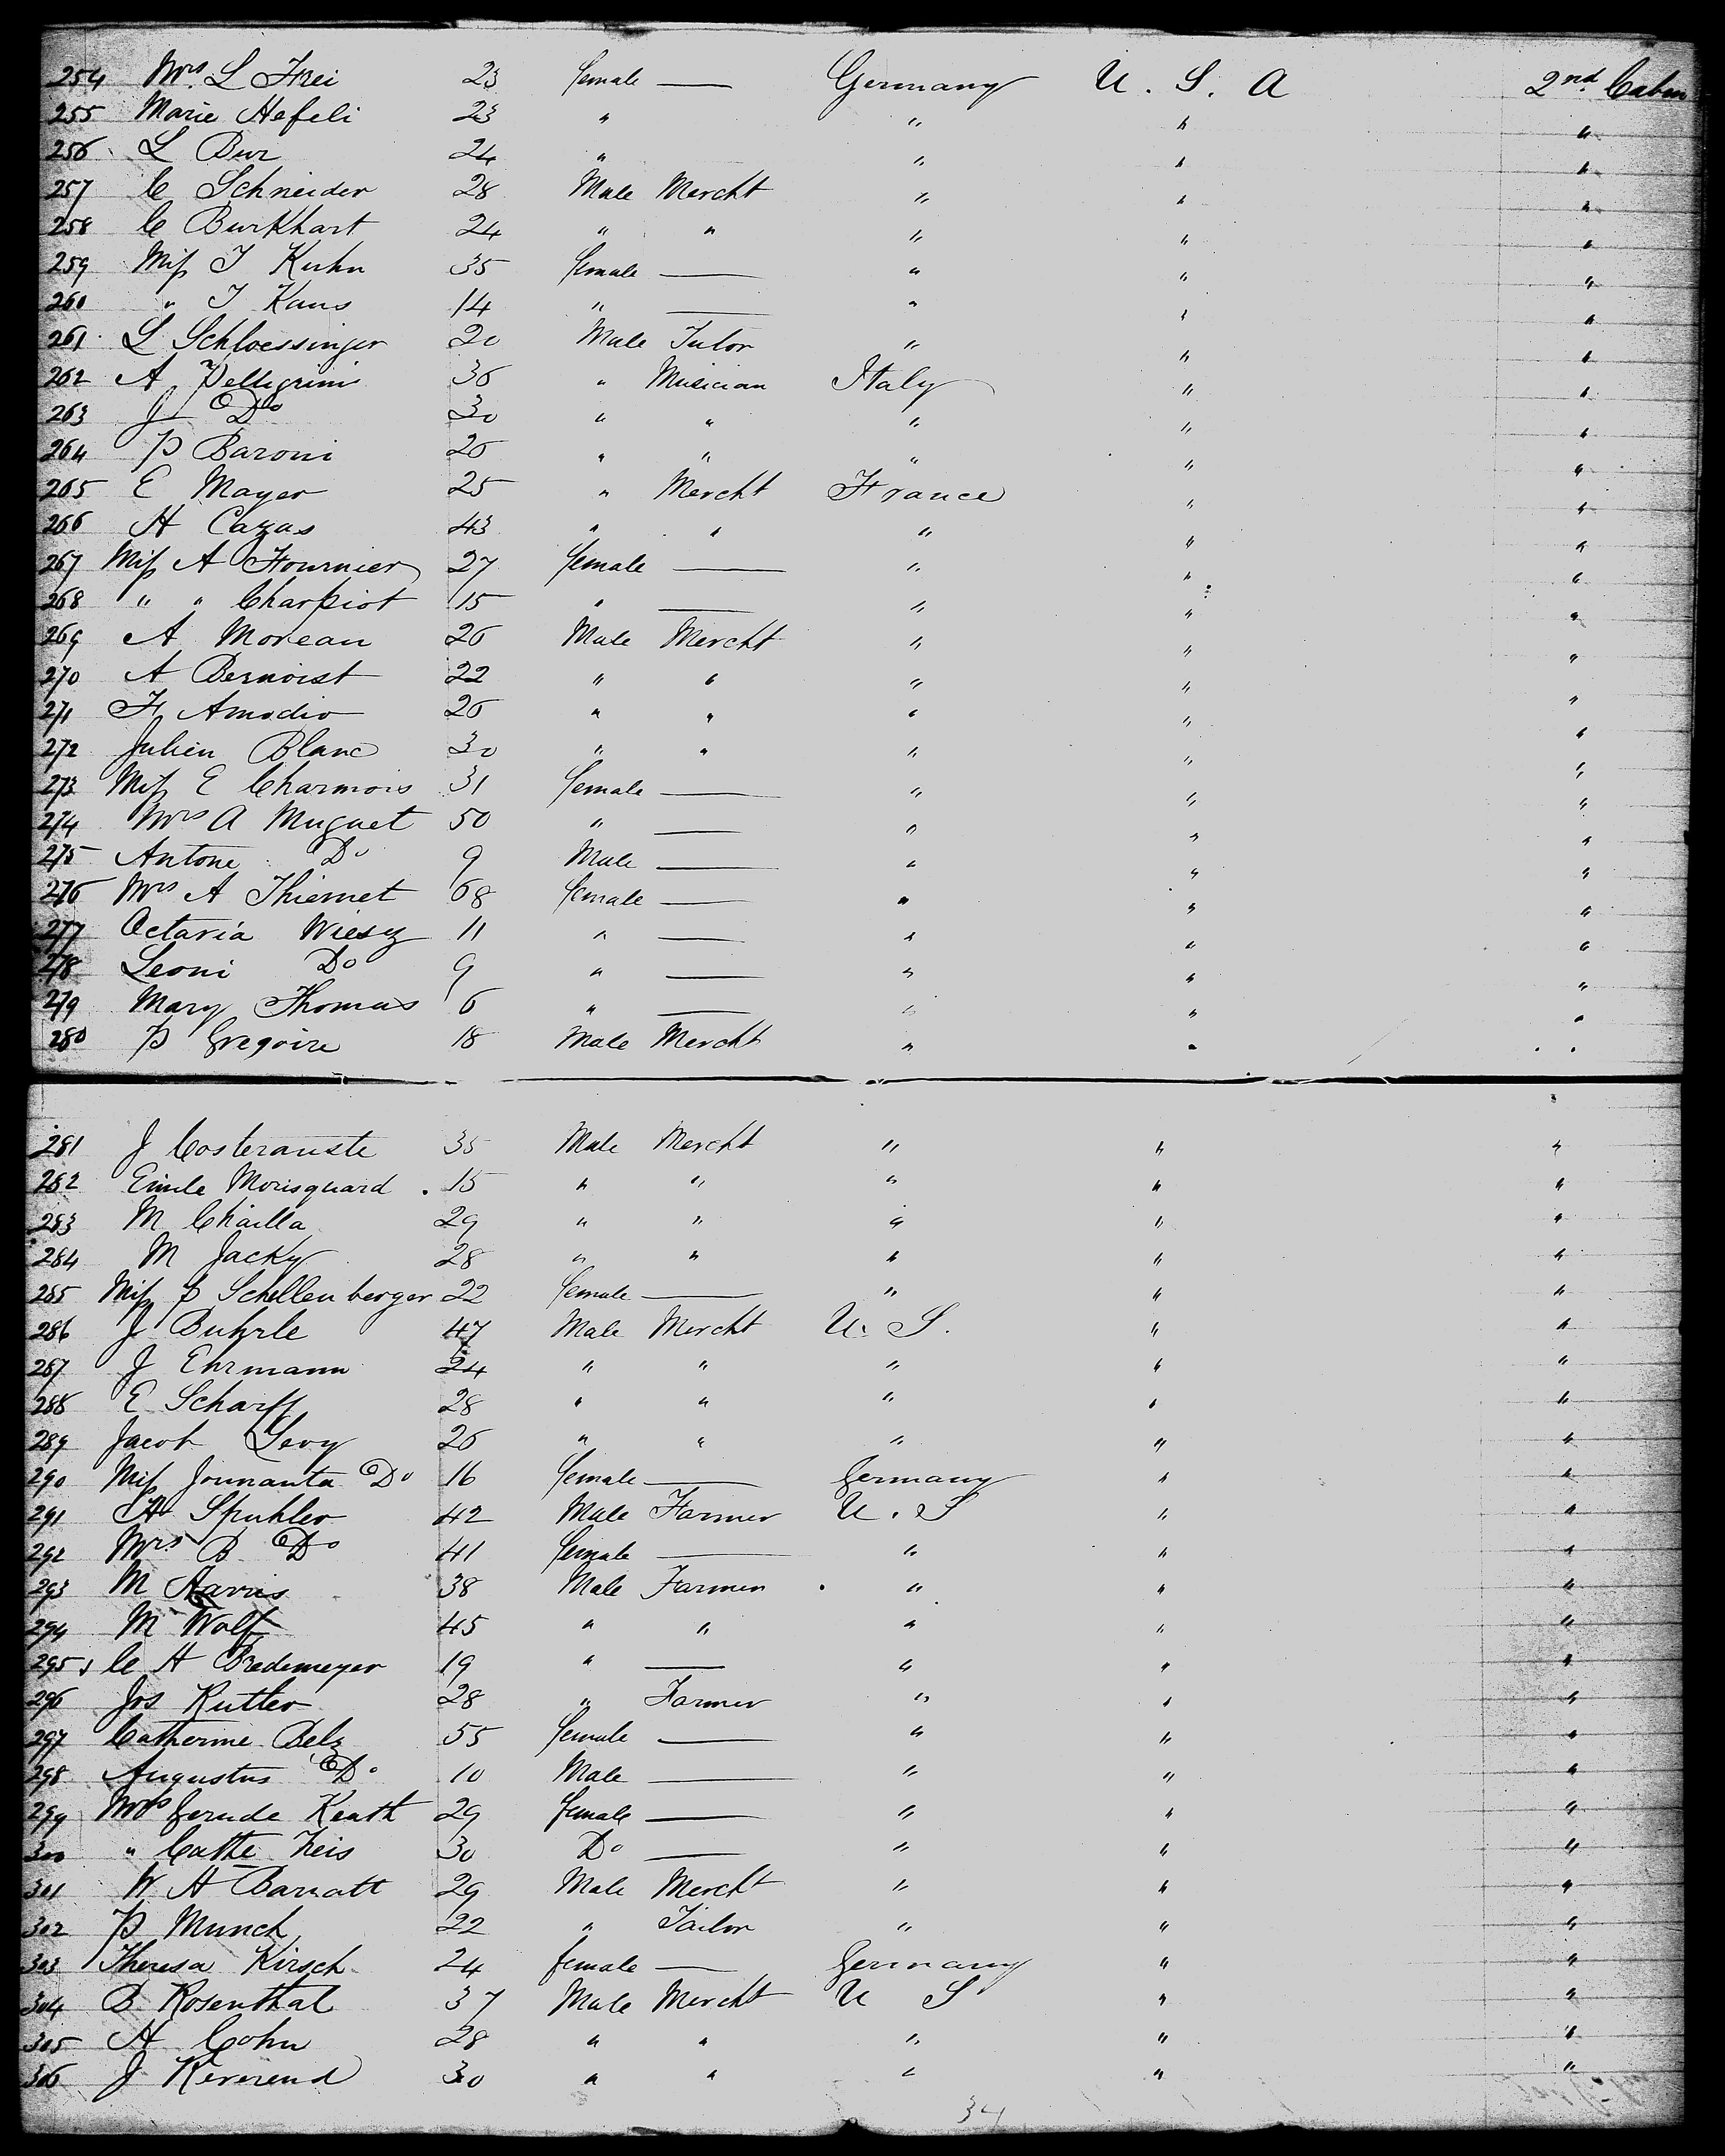 254 Mrs. L Frei 23 female — Germany U. S. A 2nd. Cabin
255 Marie Hefeli 23 " " " "
256 L Bur 24 " " " "
257 C Schneider 28 Male Mercht " " "
258 C Burkhart 24 " " " " "
259 Miss J Kuhn 35 female — " " "
260 " J Kaus 14 " — " " "
261 L Schloessinger 20 Male Tutor " " "
262 A Pellegrini 36 " Musician Italy " "
263 J Do 30 " " " " "
264 P Baroni 26 " " " " "
265 E Mayer 25 " Mercht France " "
266 H Cazas 43 " " " " "
267 Miss A Fournier 27 female — " " "
268 " " Charpiot 15 " — " " "
269 A Moreau 26 Male Mercht " " "
270 A Bernoist 22 " " " " "
271 F Amodio 26 " " " " "
272 Julien Blanc 30 " " " " "
273 Miss E Charmois 31 female — " " "
274 Mrs A Muguet 50 " — " " "
275 Antone Do 9 Male — " " "
276 Mrs A Thiemet 68 female — " " "
277 Octavia Wiesz 11 " — " " "
278 Leoni Do 9 " — " " "
279 Mary Thomas 6 " — " " "
280 P Gregoire 18 Male Mercht " " "
281 J Costerauste 35 Male Mercht " " "
282 Emile Morisquard 15 " " " " "
283 M Chailla 29 " " " " "
284 M Jacky 28 " " " " "
285 Miss P Schellenberger 22 female — " " "
286 J Buhrle 47 Male Mercht U. S. " "
287 J Ehrmann 24 " " " " "
288 E Scharff 28 " " " " "
289 Jacob Levy 26 " " " " "
290 Miss Do 16 female — Germany " "
291 A Spuhler 42 Male Farmer U. S " "
292 Mrs B Do 41 female — " " "
293 M Harris 38 Male Farmer " " "
294 M Wolf 45 " " " " "
295 C H Bredemeyer 19 " — " " "
296 Jos Rutler 28 " Farmer " " "
297 Catherine Belz 55 female — " " "
298 Augustus Do 10 Male — " " "
299 Mrs Gerude Keath 29 female — " " "
300 " Cathe Zeis 30 Do — " " "
301 W H Barratt 29 Male Mercht " " "
302 P Munch 22 " Tailor " " "
303 Theresa Kirsch 24 female — Germany " "
304 B Rosenthal 37 Male Mercht U S " "
305 H Cohn 28 " " " " "
306 J Reverend 30 " " " " "
34